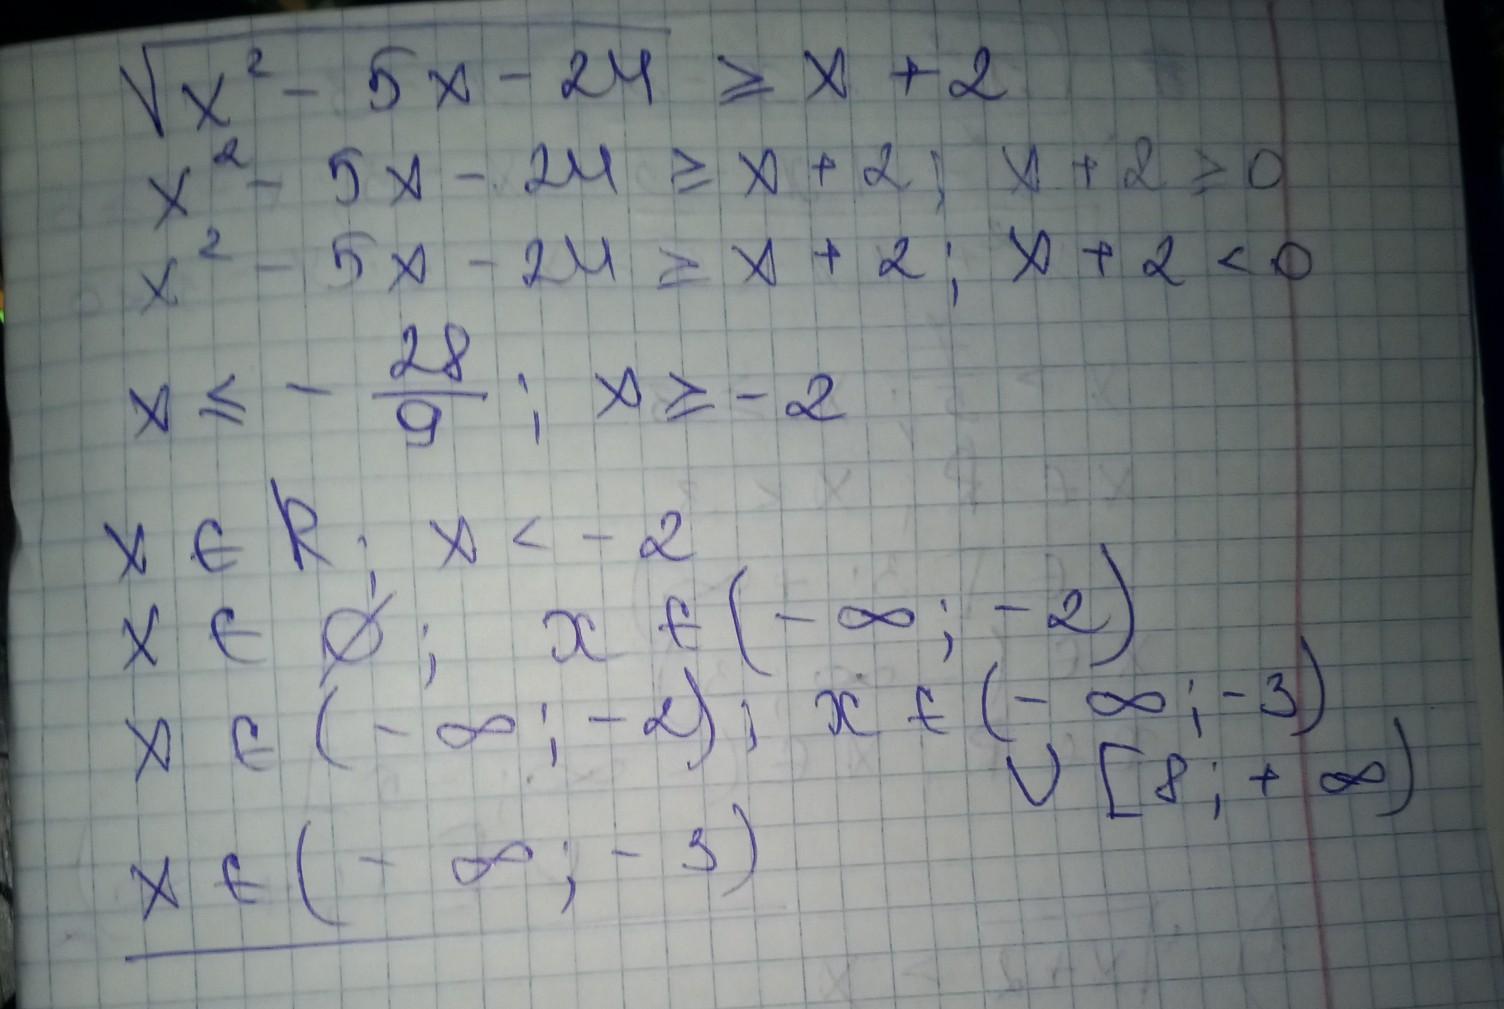 √x² - 5x - 24 ≥ x + 2
x² - 5x - 24 ≥ x + 2; x + 2 ≥ 0
x² - 5x - 24 ≥ x + 2; x + 2 < 0
x ≤ - 28/9; x ≥ - 2
x ∈ R; x < - 2
x ∈ ∅; x ∈ (- ∞; - 2)
x ∈ (- ∞; - 2); x ∈ (- ∞; - 3)
∪ [8; + ∞)
x ∈ (- ∞; - 3)